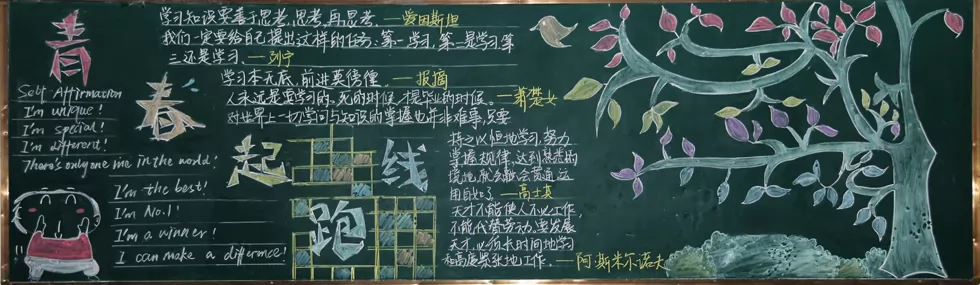 青春
起跑线
Self Affirmation
I'm unique!
I'm special!
I'm different!
There's only one me in the world!
I'm the best!
I'm No.1!
I'm a winner!
I can make a difference!
学习知识要善于思考,思考,再思考。—爱因斯坦
我们一定要给自己提出这样的任务:第一学习,第二是学习,第
三还是学习。—列宁
学习本无底,前进莫徬徨。—报摘
人永远是要学习的。死的时候,才是毕业的时候。—萧楚女
对世界上一切学问与知识的掌握也并非难事,只要
持之以恒地学习,努力
掌握规律,达到熟悉的
境地,就会融会贯通,运
用自如了—高士其
天才不能使人不必工作,
不能代替劳动。要发展
天才,必须长时间地学习
和高度紧张地工作。—阿斯米尔诺夫